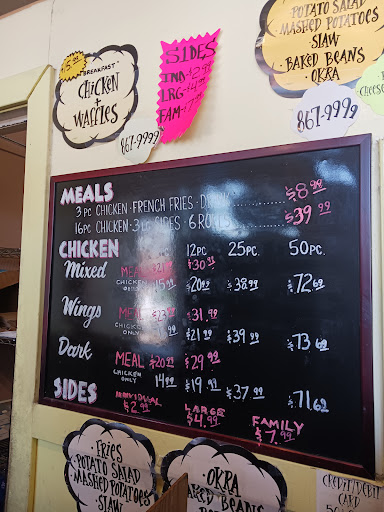 $5.00
"BREAKFAST"
CHICKEN
+
WAFFLES
SIDES
IND-$2.99
LRG-$4.99
FAM-$7.99
867-9999
POTATO SALAD
• MASHED POTATOES
• SLAW
• BAKED BEANS
• OKRA
867-9999
MEALS
3 PC CHICKEN • FRENCH FRIES • $8.99
16 PC CHICKEN • 3 LG SIDES • 6 ROLLS $39.99
CHICKEN 12PC. 25PC. 50PC.
Mixed MEAL $21 $30
CHICKEN ONLY 15 $20.99 $38.99 $72.62
Wings MEAL $23.99 $31.99
CHICKEN ONLY 99 $21.99 $39.99 $73.62
Dark MEAL $20.99 $29.99
CHICKEN ONLY 14.99 $19.99 $37.99 $71.62
SIDES INDIVIDUAL LARGE FAMILY
$2.99 $4.99 $7.99
FRIES
• POTATO SALAD
• MASHED POTATOES
SLAW
• OKRA
BAKED BEANS
CREDIT/DEBIT
CARD